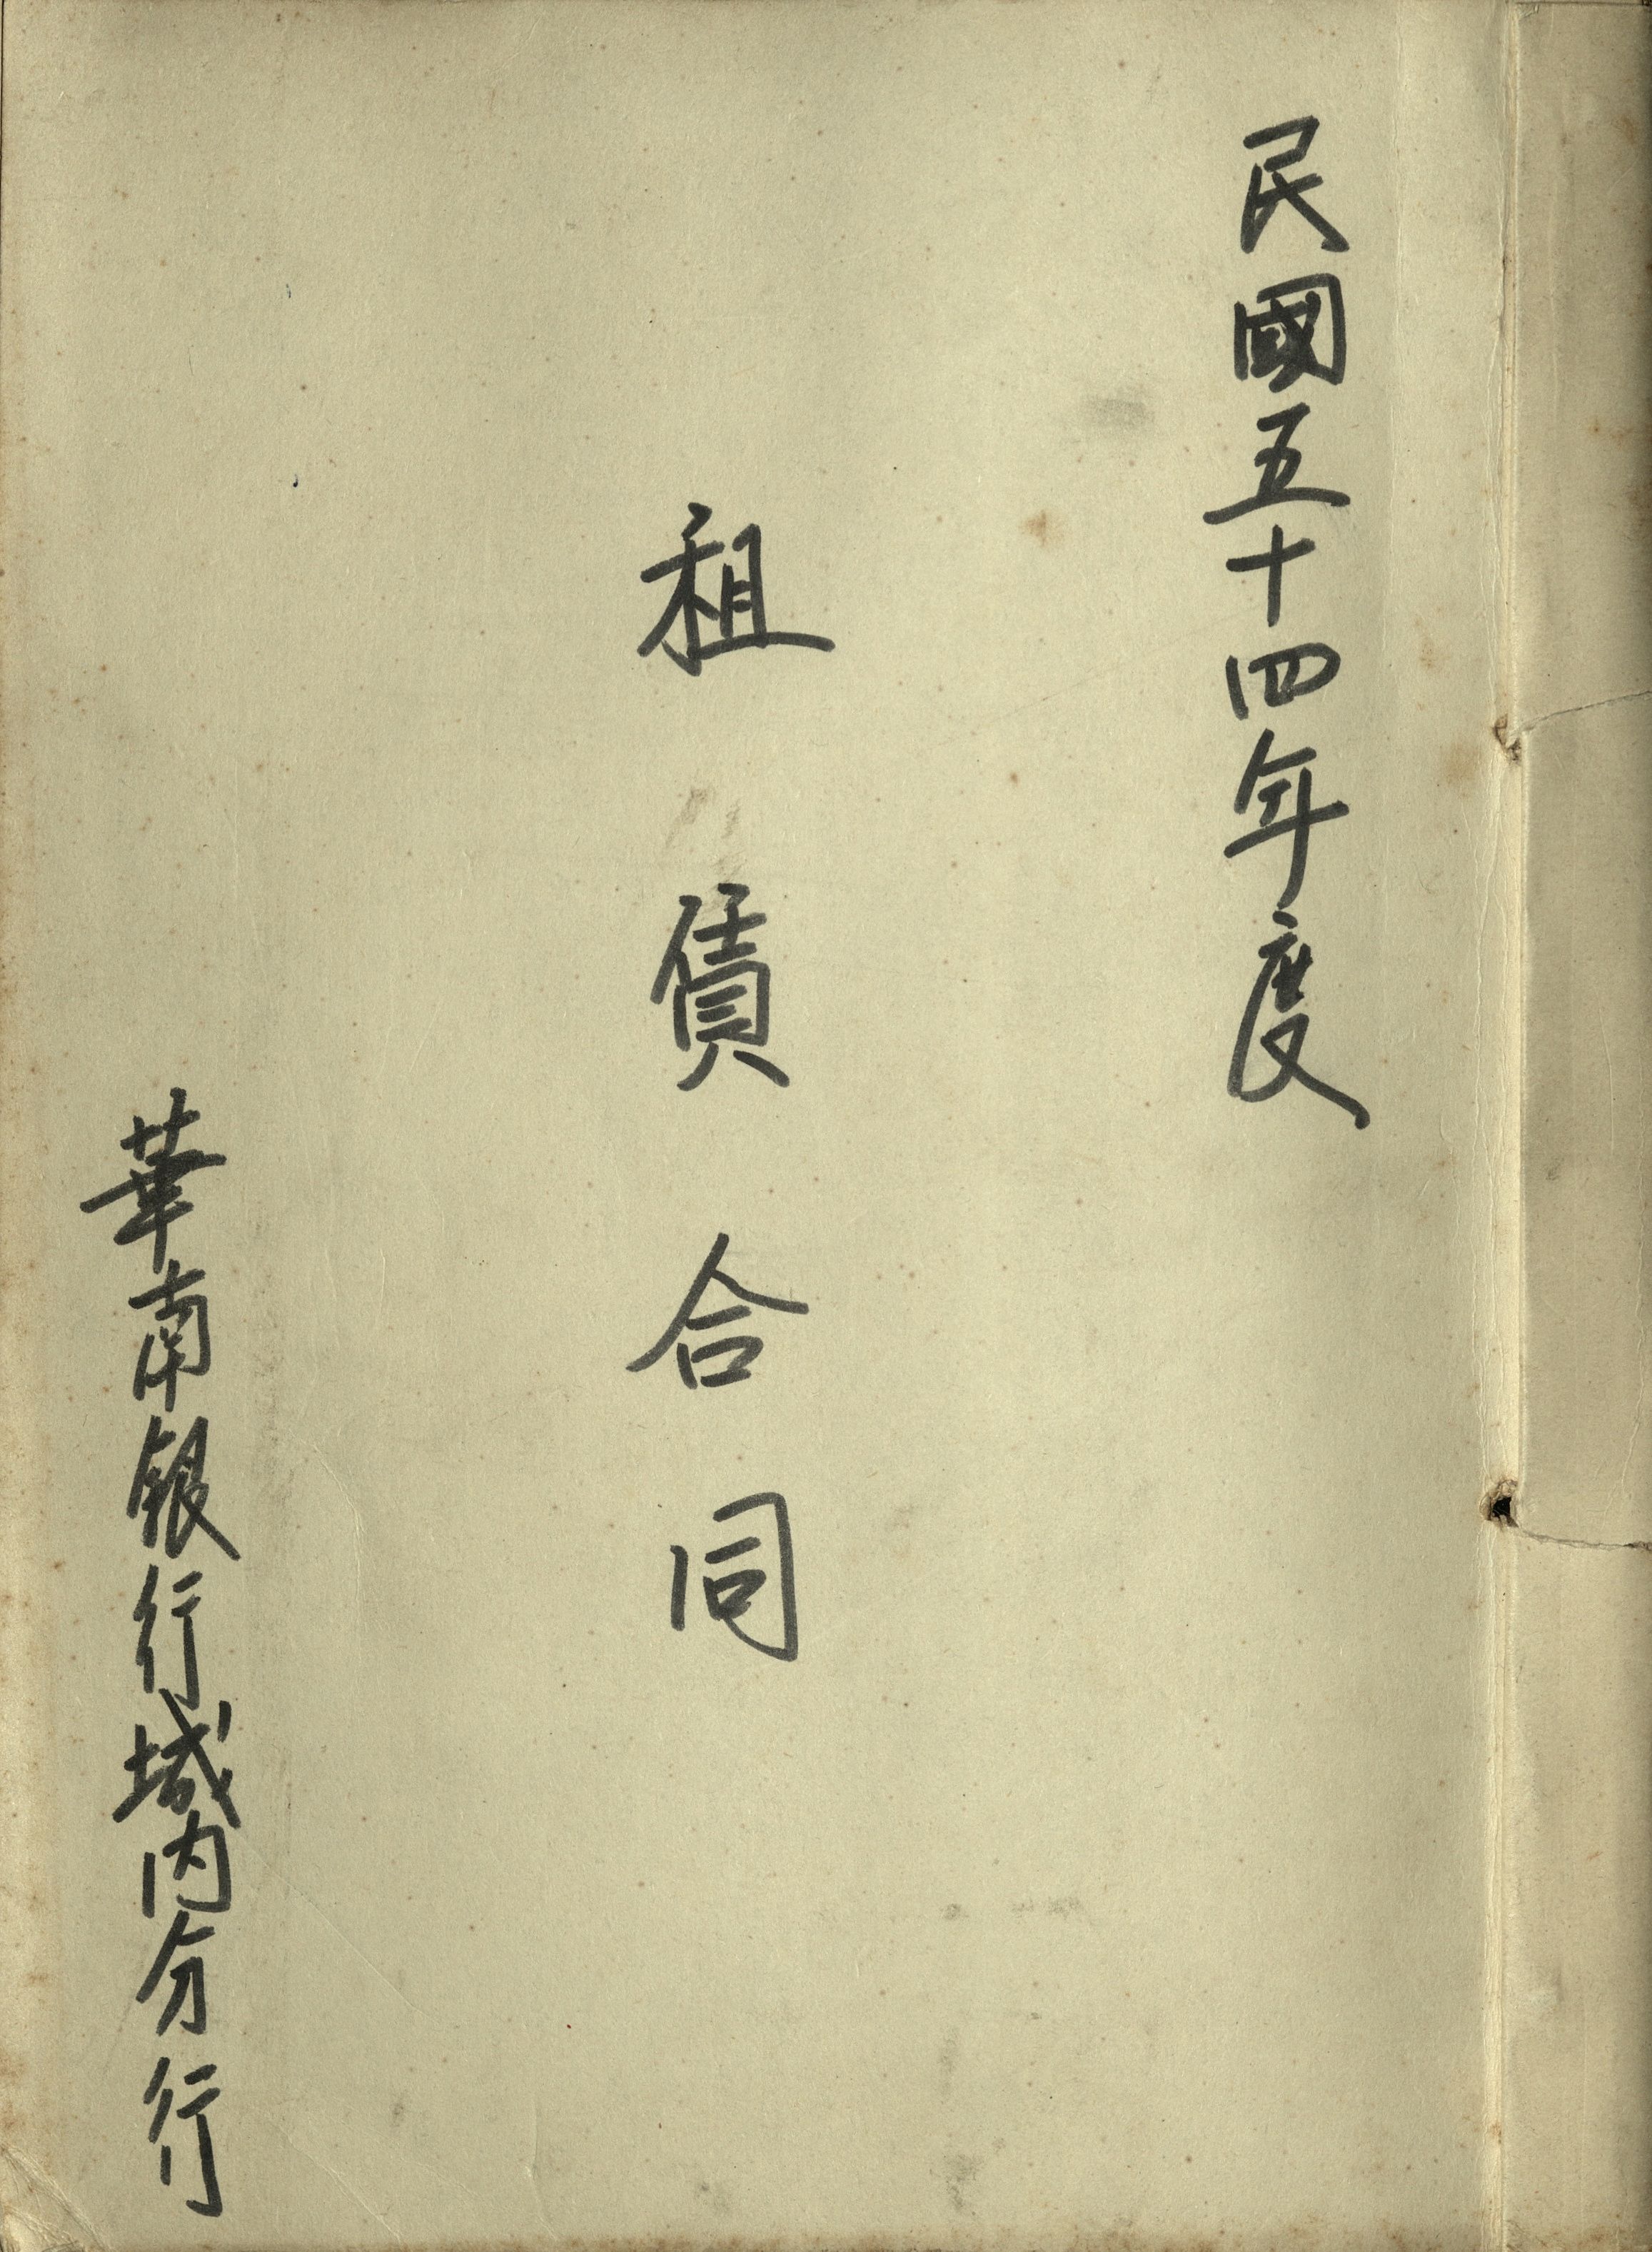 民國五十四年度
租賃合同
華南銀行城內分行